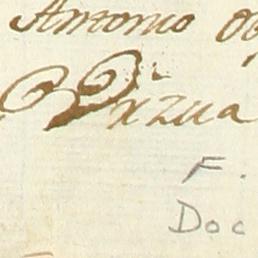 Antonio Ob
Vizua
F.
Doc